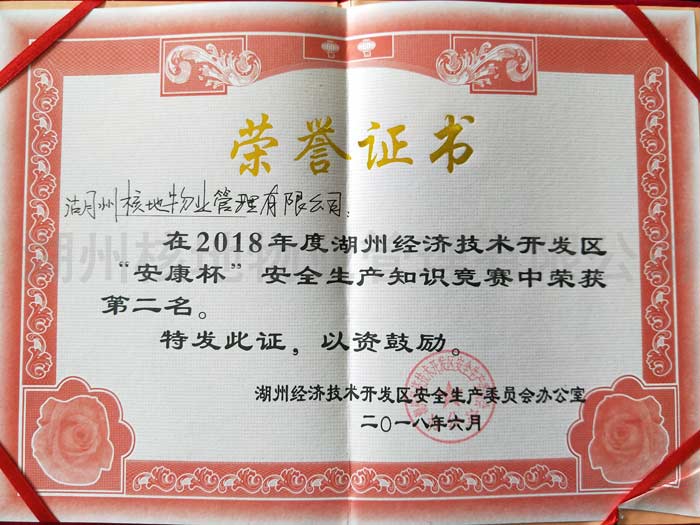 荣誉证书
湖州核地物业管理有限公司：
在2018年度湖州经济技术开发区
“安康杯”安全生产知识竞赛中荣获
第二名。
特发此证，以资鼓励。
湖州经济技术开发区安全生产委员会办公室
二〇一八年六月